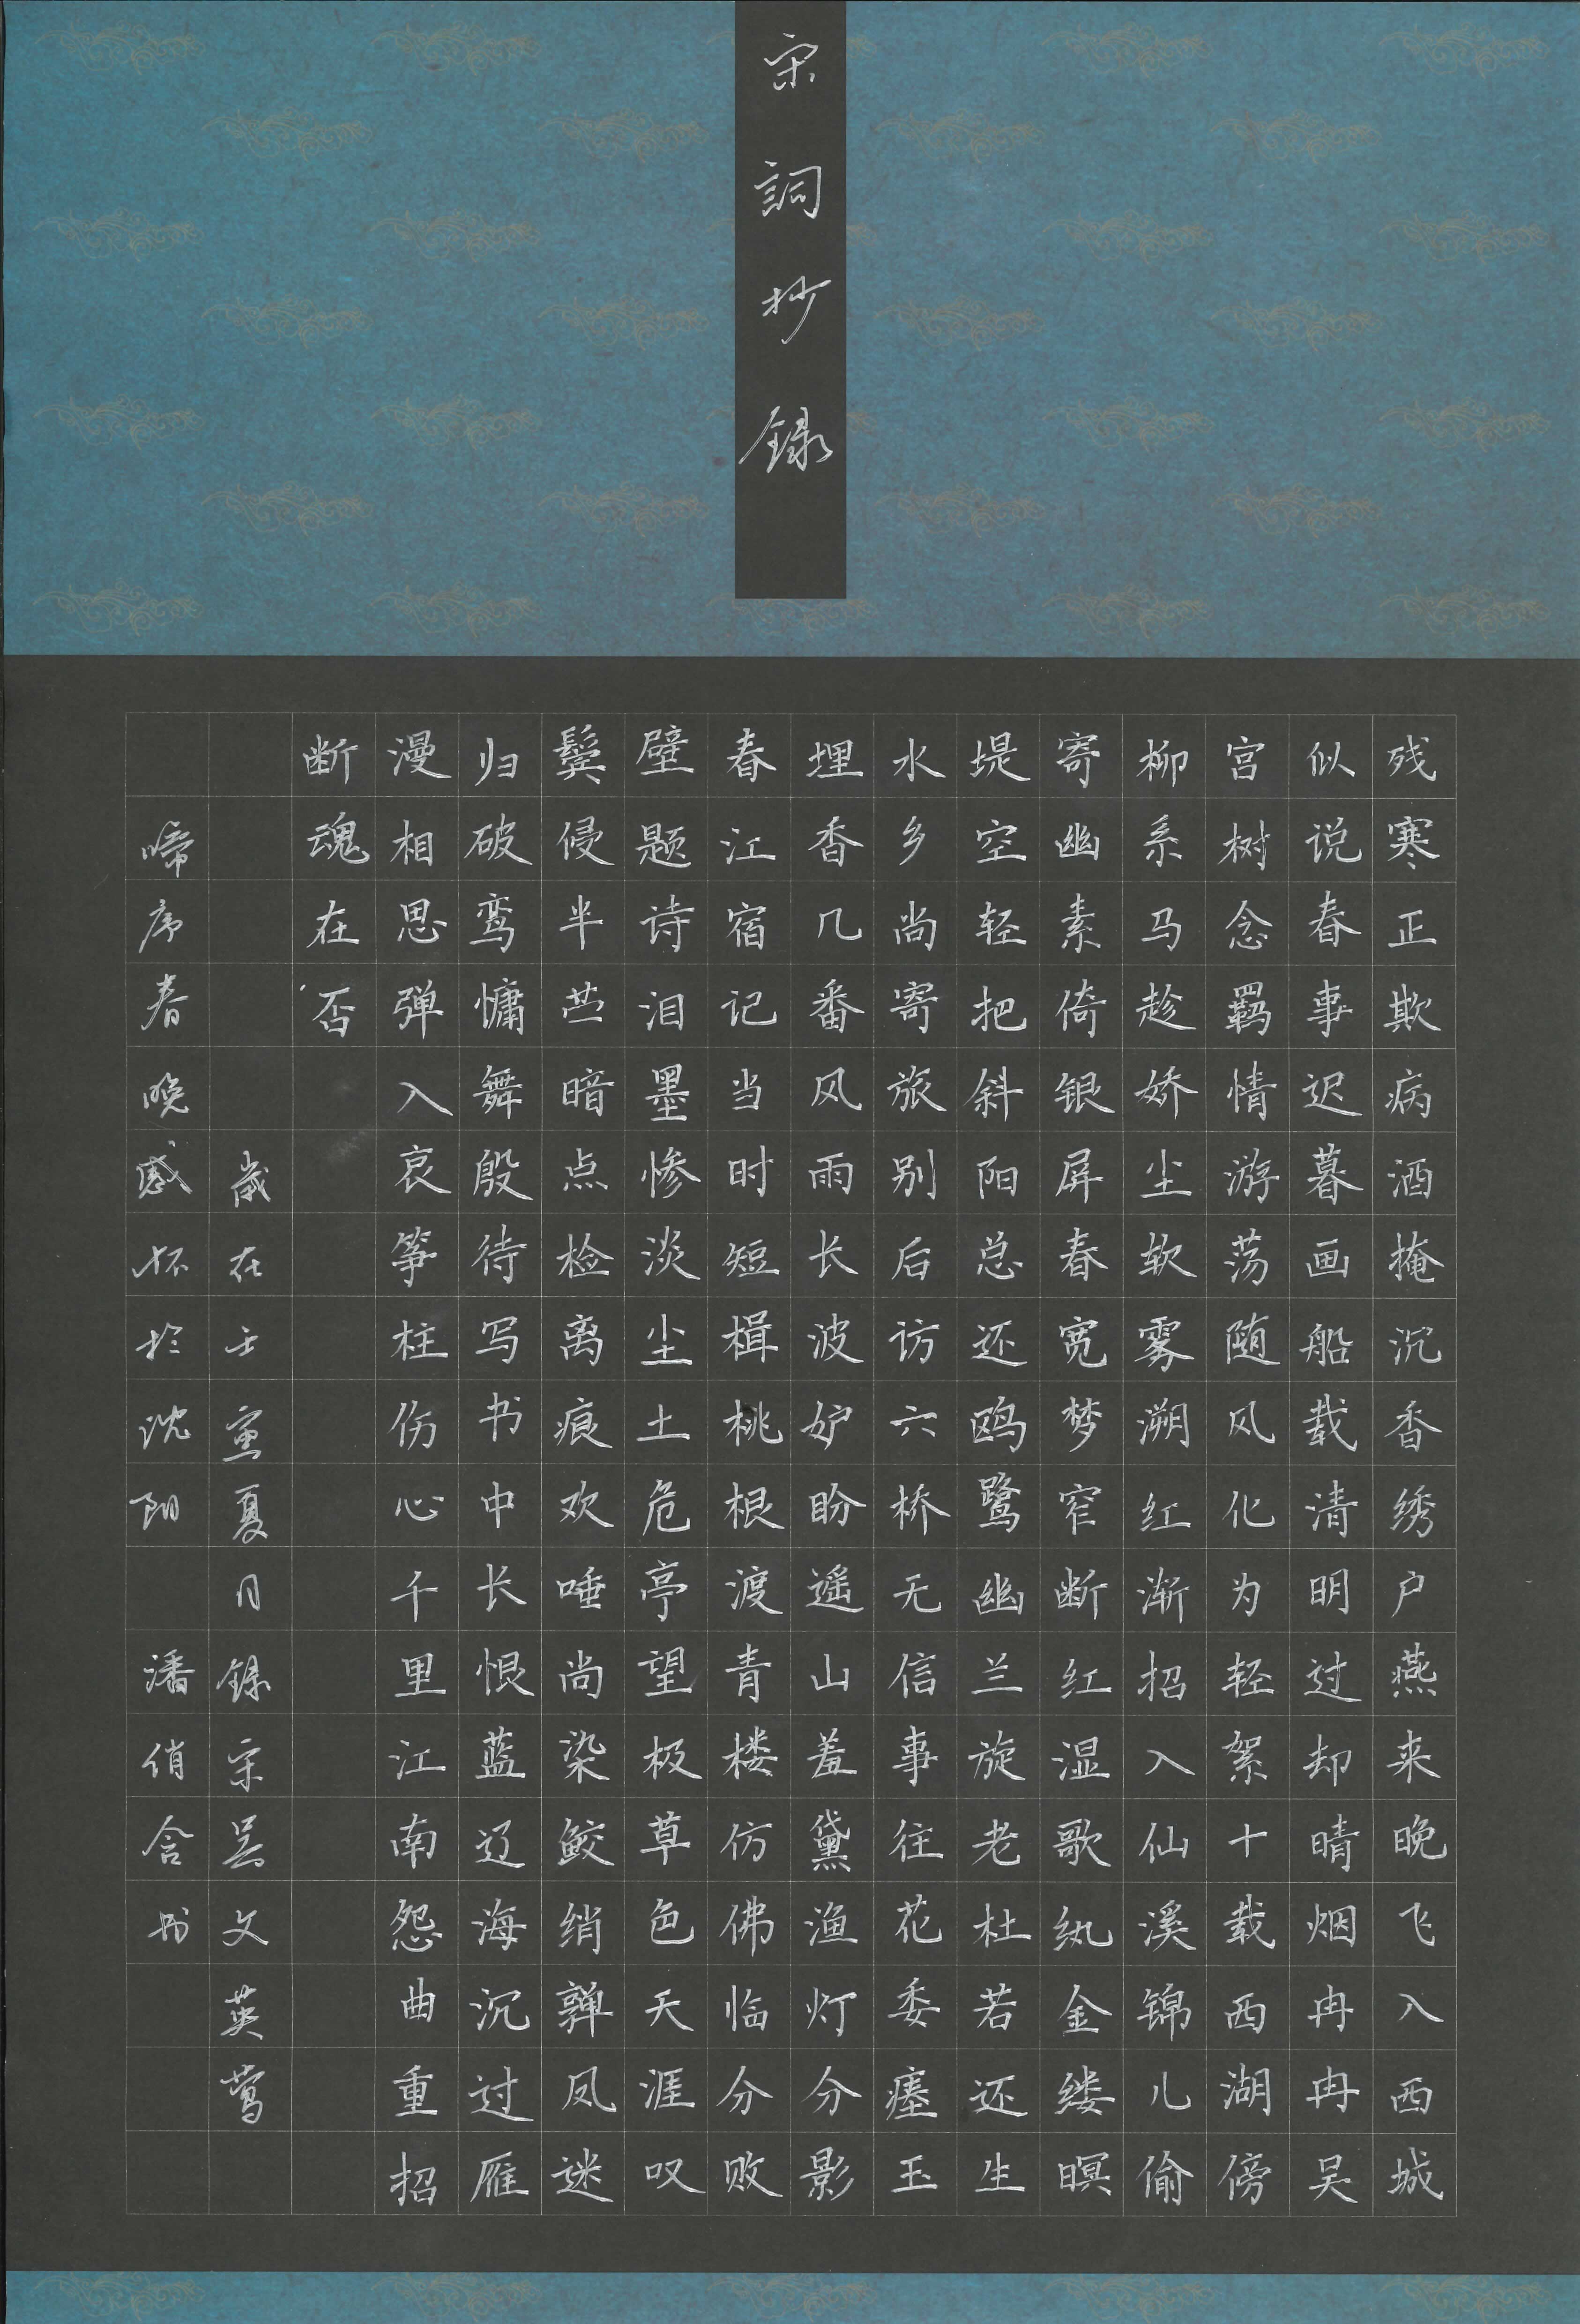 宋詞抄録
残寒正欺病酒掩沉香绣户燕来晚飞入西城
似说春事迟暮画船载清明过却晴烟冉冉吴
宫树念羁情游荡随风化为轻絮十载西湖傍
柳系马趁娇尘软雾溯红渐招入仙溪锦儿偷
寄幽素倚银屏春宽梦窄断红湿歌纨金缕暝
堤空轻把斜阳总还鸥鹭幽兰旋老杜若还生
水乡尚寄旅别后访六桥无信事往花委瘗玉
埋香几番风雨长波妒盼遥山羞黛渔灯分影
春江宿记当时短楫桃根渡青楼仿佛临分败
壁题诗泪墨惨淡尘土危亭望极草色天涯叹
鬓侵半苎暗点检离痕欢唾尚染鲛绡亸凤迷
归破鸾慵舞殷待写书中长恨蓝辽海沉过雁
漫相思弹入哀筝柱伤心千里江南怨曲重招
断魂在否
歲在壬寅夏月録宋吴文英莺
啼序春晚感怀於沈阳 潘俏含书